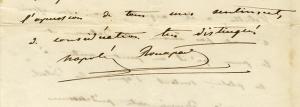 l'expression de tous mes sentiments,
de considération très distingués
Napoléon Bonaparte